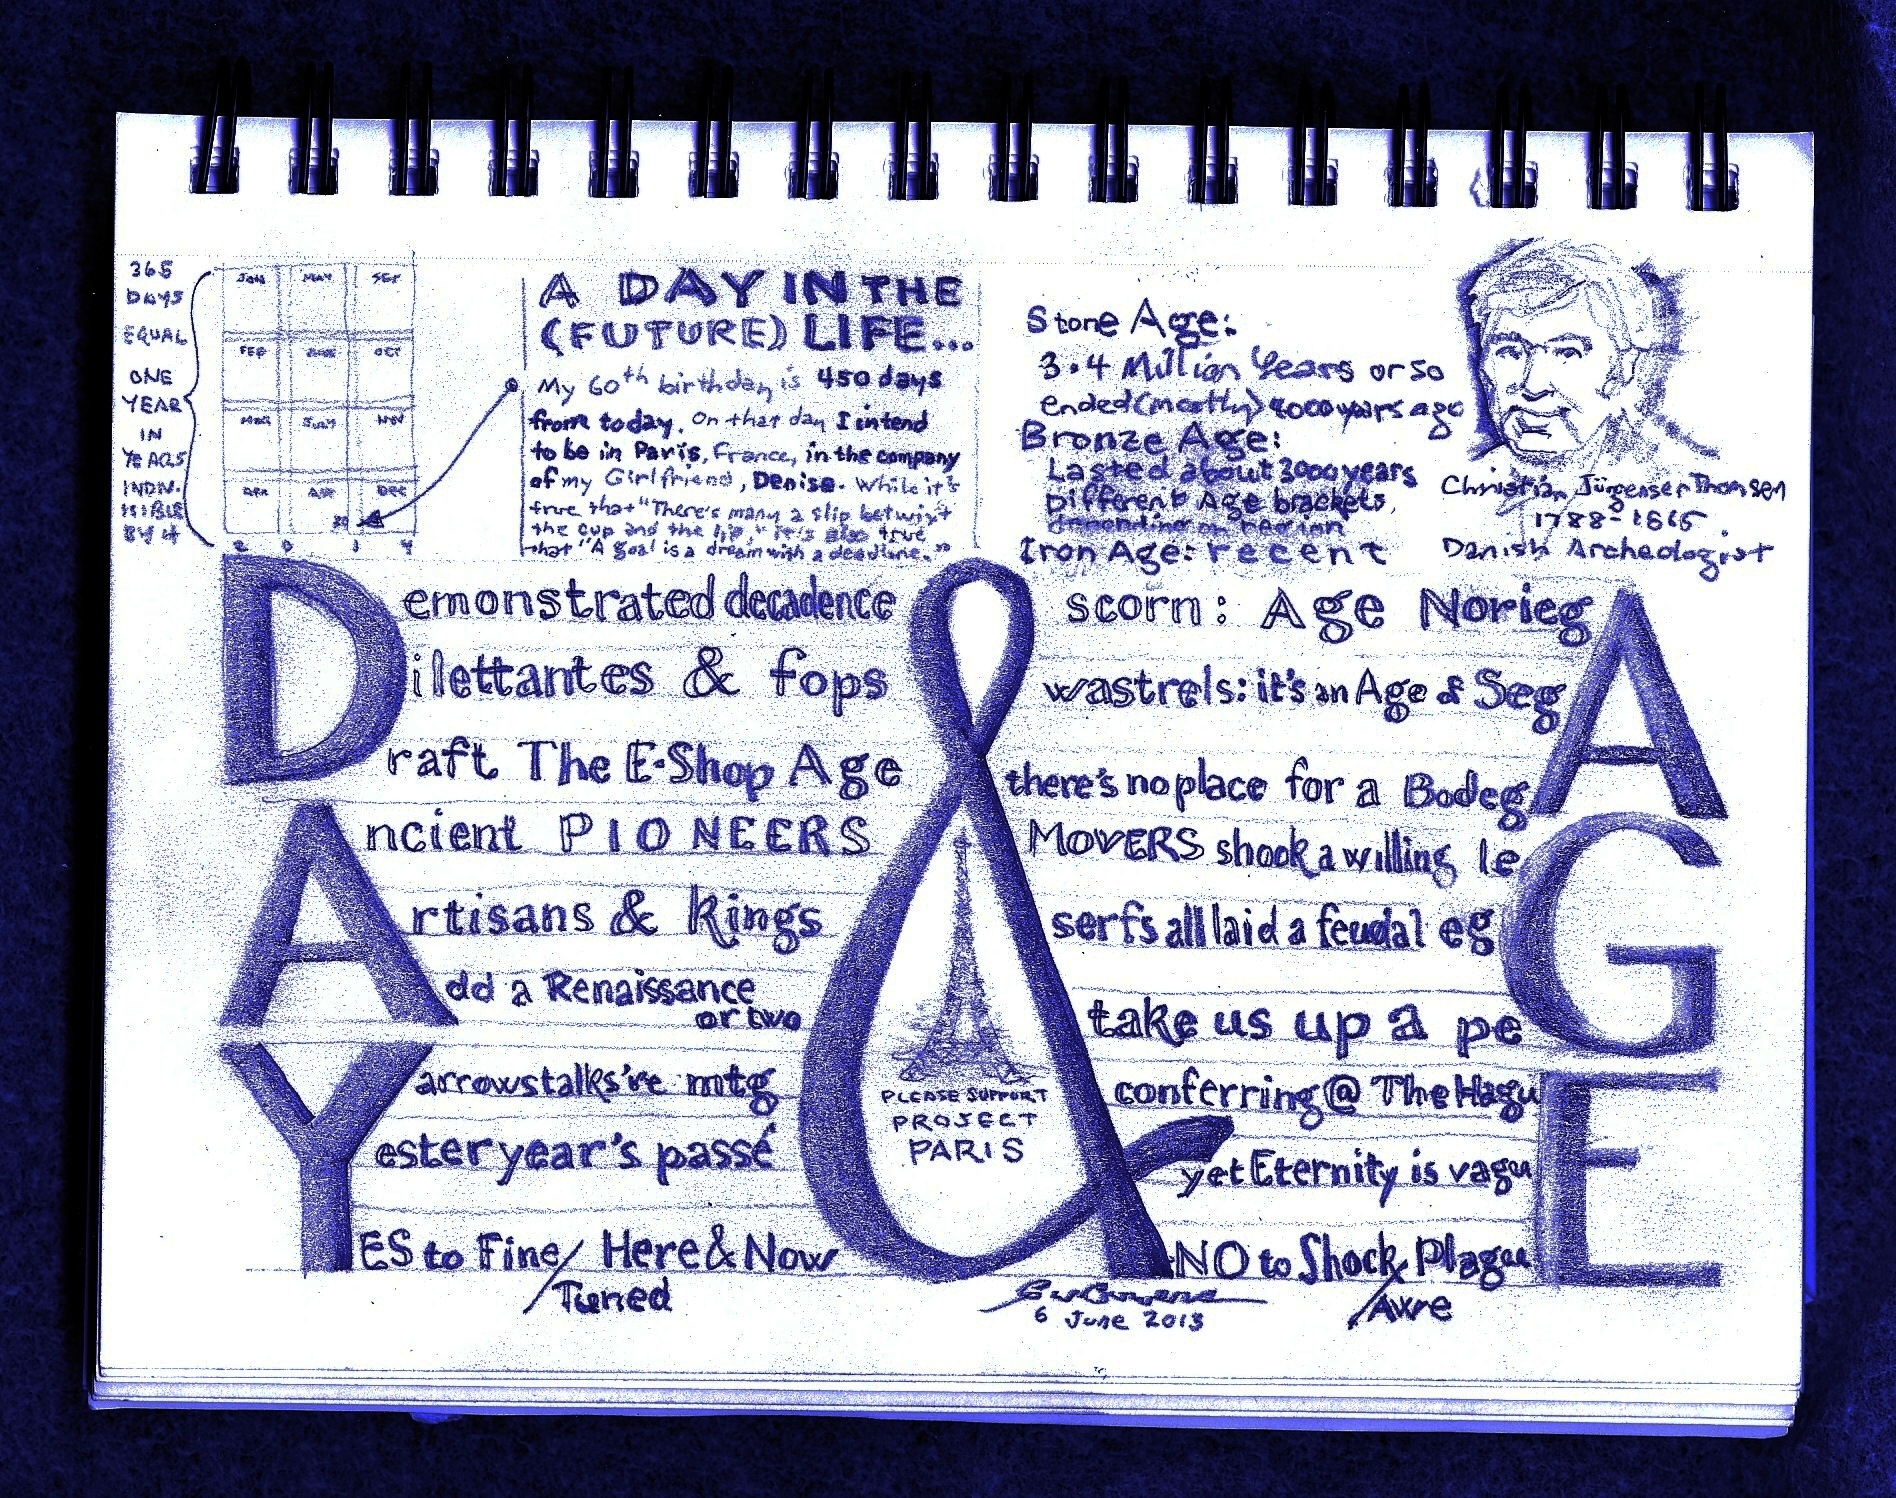 365
DAYS
EQUAL
ONE
YEAR
IN
YEARS
INDIV-
ISIBLE
BY 4
JAN MAY SEP
FEB JUN OCT
MAR JULY NOV
APR AUG DEC
2 0 1 4
A DAY IN THE
(FUTURE) LIFE...
My 60th birthday is 450 days
from today. On that day I intend
to be in Paris, France, in the company
of my Girlfriend, Denise. While it's
true that "There's many a slip betwixt
the cup and the lip," it's also true
that "A goal is a dream with a deadline."
Stone Age:
3.4 Million Years or so
ended (mostly) 4000 years ago
Bronze Age:
Lasted about 3000 years
Different Age brackets,
depending on region
Iron Age: recent
Christian Jürgensen Thomsen
1788-1865
Danish Archeologist
Demonstrated decadence & scorn: Age NoriegA
Dilettantes & fops wastrels: it's an Age of SegA
Draft The E-Shop Age there's no place for a BodegA
Ancient PIONEERS MOVERS shook a willing leG
Artisans & Kings serfs all laid a feudal egG
Add a Renaissance or two take us up a peG
Yarrowstalks're mtg conferring @ The HaguE
Yesteryear's passé yet Eternity is vaguE
YES to Fine/Tuned Here & Now NO to Shock/Awe PlaguE
PLEASE SUPPORT
PROJECT
PARIS
6 June 2013